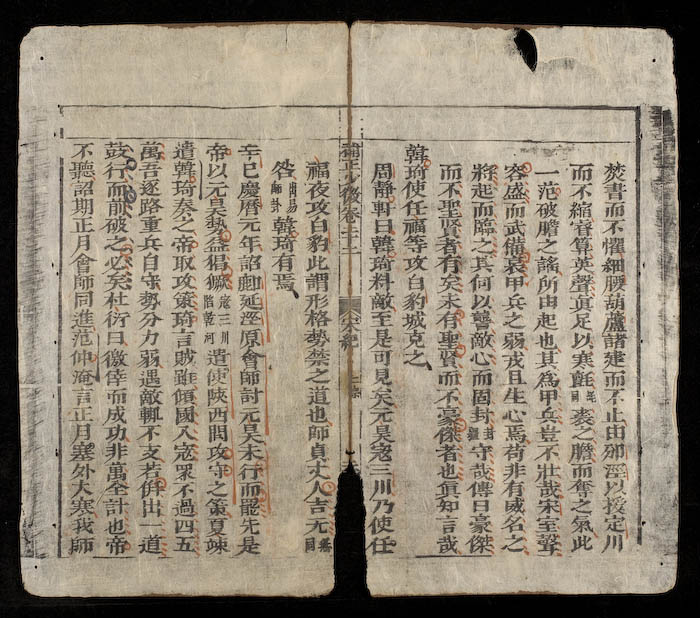 焚書而不懼細腰葫蘆諸建而不止由邪涇以援定川
而不縮睿算英聲眞足以寒氈裘之膽而奪之氣此
一范破膽之謠所由起也其爲甲兵豈不壯哉宋室聲
容盛而武備衰甲兵之弱戎且生心焉苟非有威名之
將起而臨之其何以讋敵心而固封守哉傳曰豪傑
而不聖賢者有矣未有聖賢而不豪傑者也眞知言哉
韓琦使任福等攻白豹城克之
周靜軒曰韓琦料敵至是可見矣元昊寇三川乃使任
福夜攻白豹此謂形格勢禁之道也師貞丈人吉无
咎出易師卦韓琦有焉
辛巳慶曆元年詔鄜延涇原會師討元昊未行而罷先是
帝以元昊勢益猖獗寇三川陷乾河遣使陝西問攻守之策夏竦
遣韓琦奏之帝取攻策琦言賊雖傾國入寇眾不過四五
萬吾逐路重兵自守勢分力弱遇敵輒不支若併出一道
鼓行而前破之必矣杜衍曰徼倖而成功非萬全計也帝
不聽詔期正月會師同進范仲淹言正月塞外大寒我師